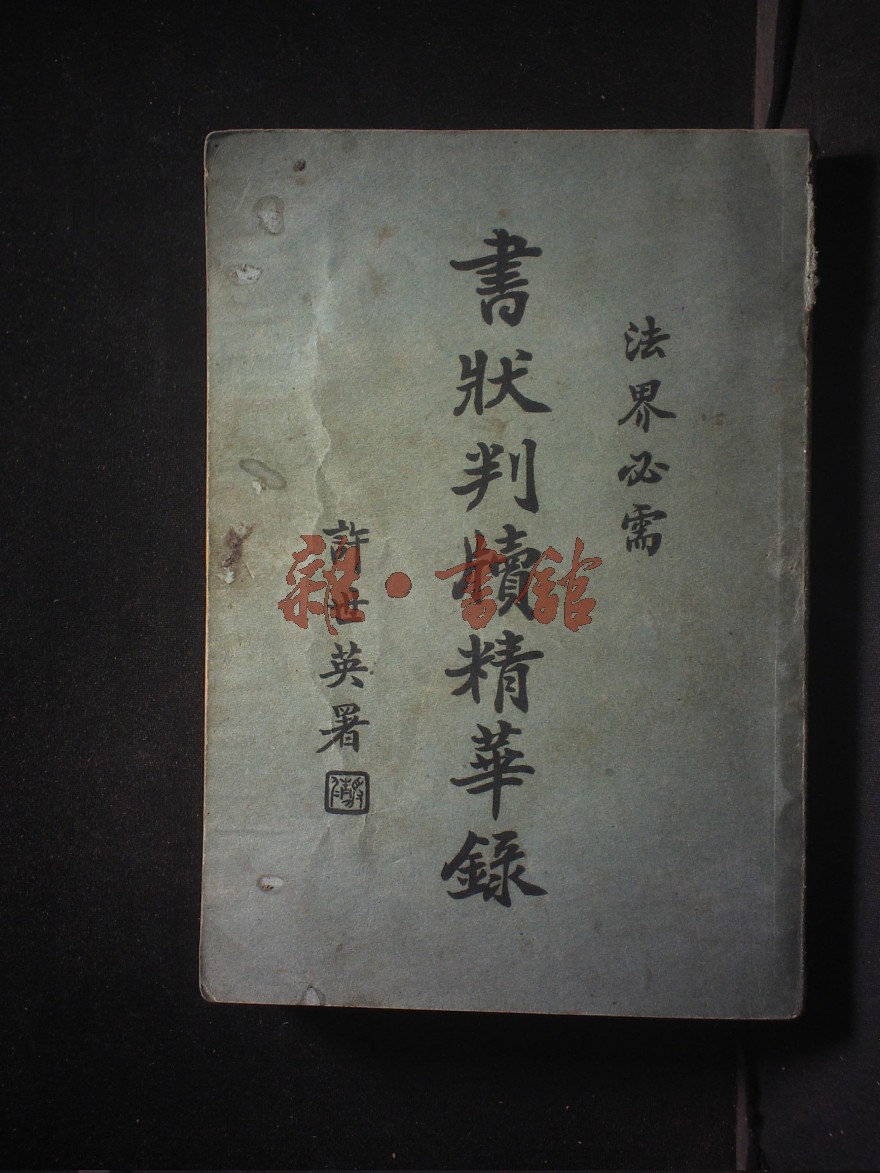 法界必需
書狀判牘精華錄
許世英署
雜·書館